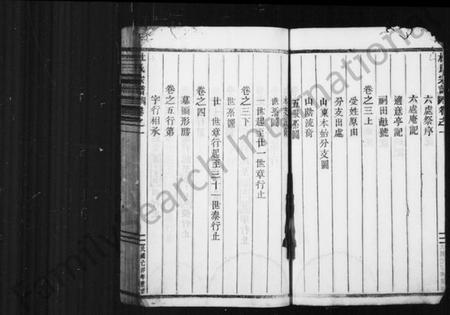 杜氏宗譜
卷之一
六處祭序
六處庵記
適意亭記
嗣田畝號
卷之三上
受姓原由
分支出處
山東木始分支圖
山陰流寄
五服圖
世系圖
一世起至廿一世章行止
卷之三下
世系圖
廿一世章行起至三十一世泰行止
卷之四
墓圖形勝
卷之五行第
字行相承
FamilySearch International